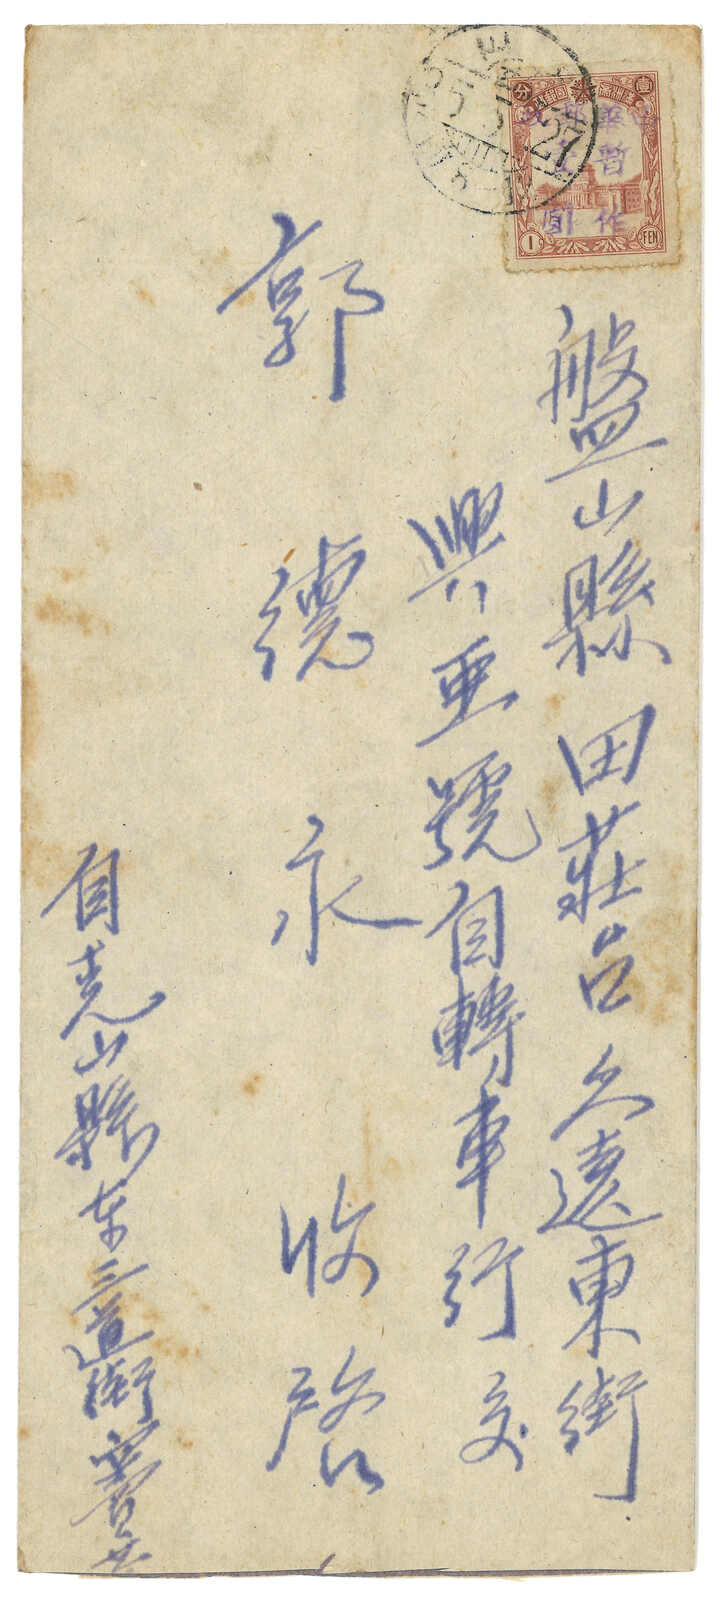 盤山縣田莊台久遠東街
興亜號自轉車行交
郭德永收啓
自光山縣东三道街
壹分
中華郵政
暫作
1
FEN
27